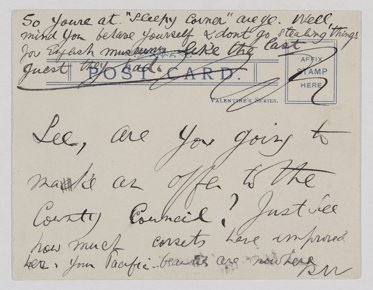 So youre at "Sleepy Corner" are ye. Well,
mind you behave yourself & dont go stealing things
for English museums like the last
guest they had.
POST CARD.
AFFIX
STAMP
HERE
VALENTINE'S SERIES.
Lee, are you going to
make an offer to the
County Council? Just see
how much corsets have improved
her. Your Pacific beauties are nowhere